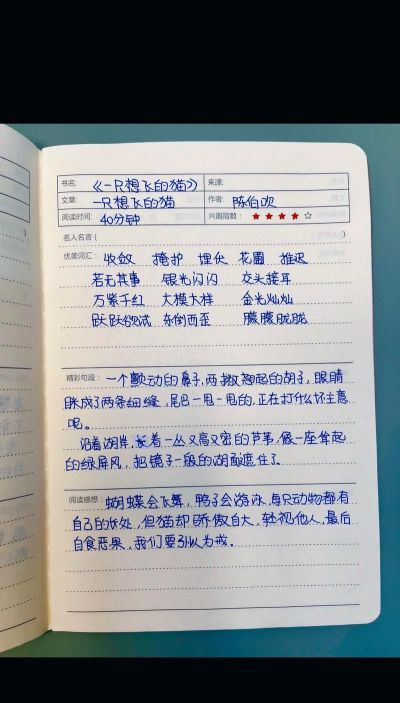 书名: 《一只想飞的猫》 来源:
文章: 一只想飞的猫 作者: 陈伯吹
阅读时间: 40分钟 兴趣指数: ★★★★☆
名人名言( )
优美词汇: 收敛 掩护 埋伏 花圃 推迟
若无其事 银光闪闪 交头接耳
万紫千红 大模大样 金光灿灿
跃跃欲试 东倒西歪 朦朦胧胧
精彩句段: 一个颤动的鼻子,两撇翘起的胡子,眼睛
眯成了两条细缝,尾巴一甩一甩的,正在打什么坏主意
呢。
沿着湖岸,长着一丛又高又密的芦苇,像一座耸起
的绿屏风,把镜子一般的湖面遮住了。
阅读感想: 蝴蝶会飞舞,鸭子会游泳,每只动物都有
自己的长处,但猫却骄傲自大,轻视他人,最后
自食恶果,我们要引以为戒。